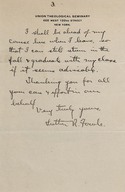 3
UNION THEOLOGICAL SEMINARY
NEW YORK
I shall be ahead of my
course has when I leave, so
that I can still return in the
fall & graduate with my class
if it seems advisable.
Thanking you for all
you can & are in our
behalf
Very truly yours,